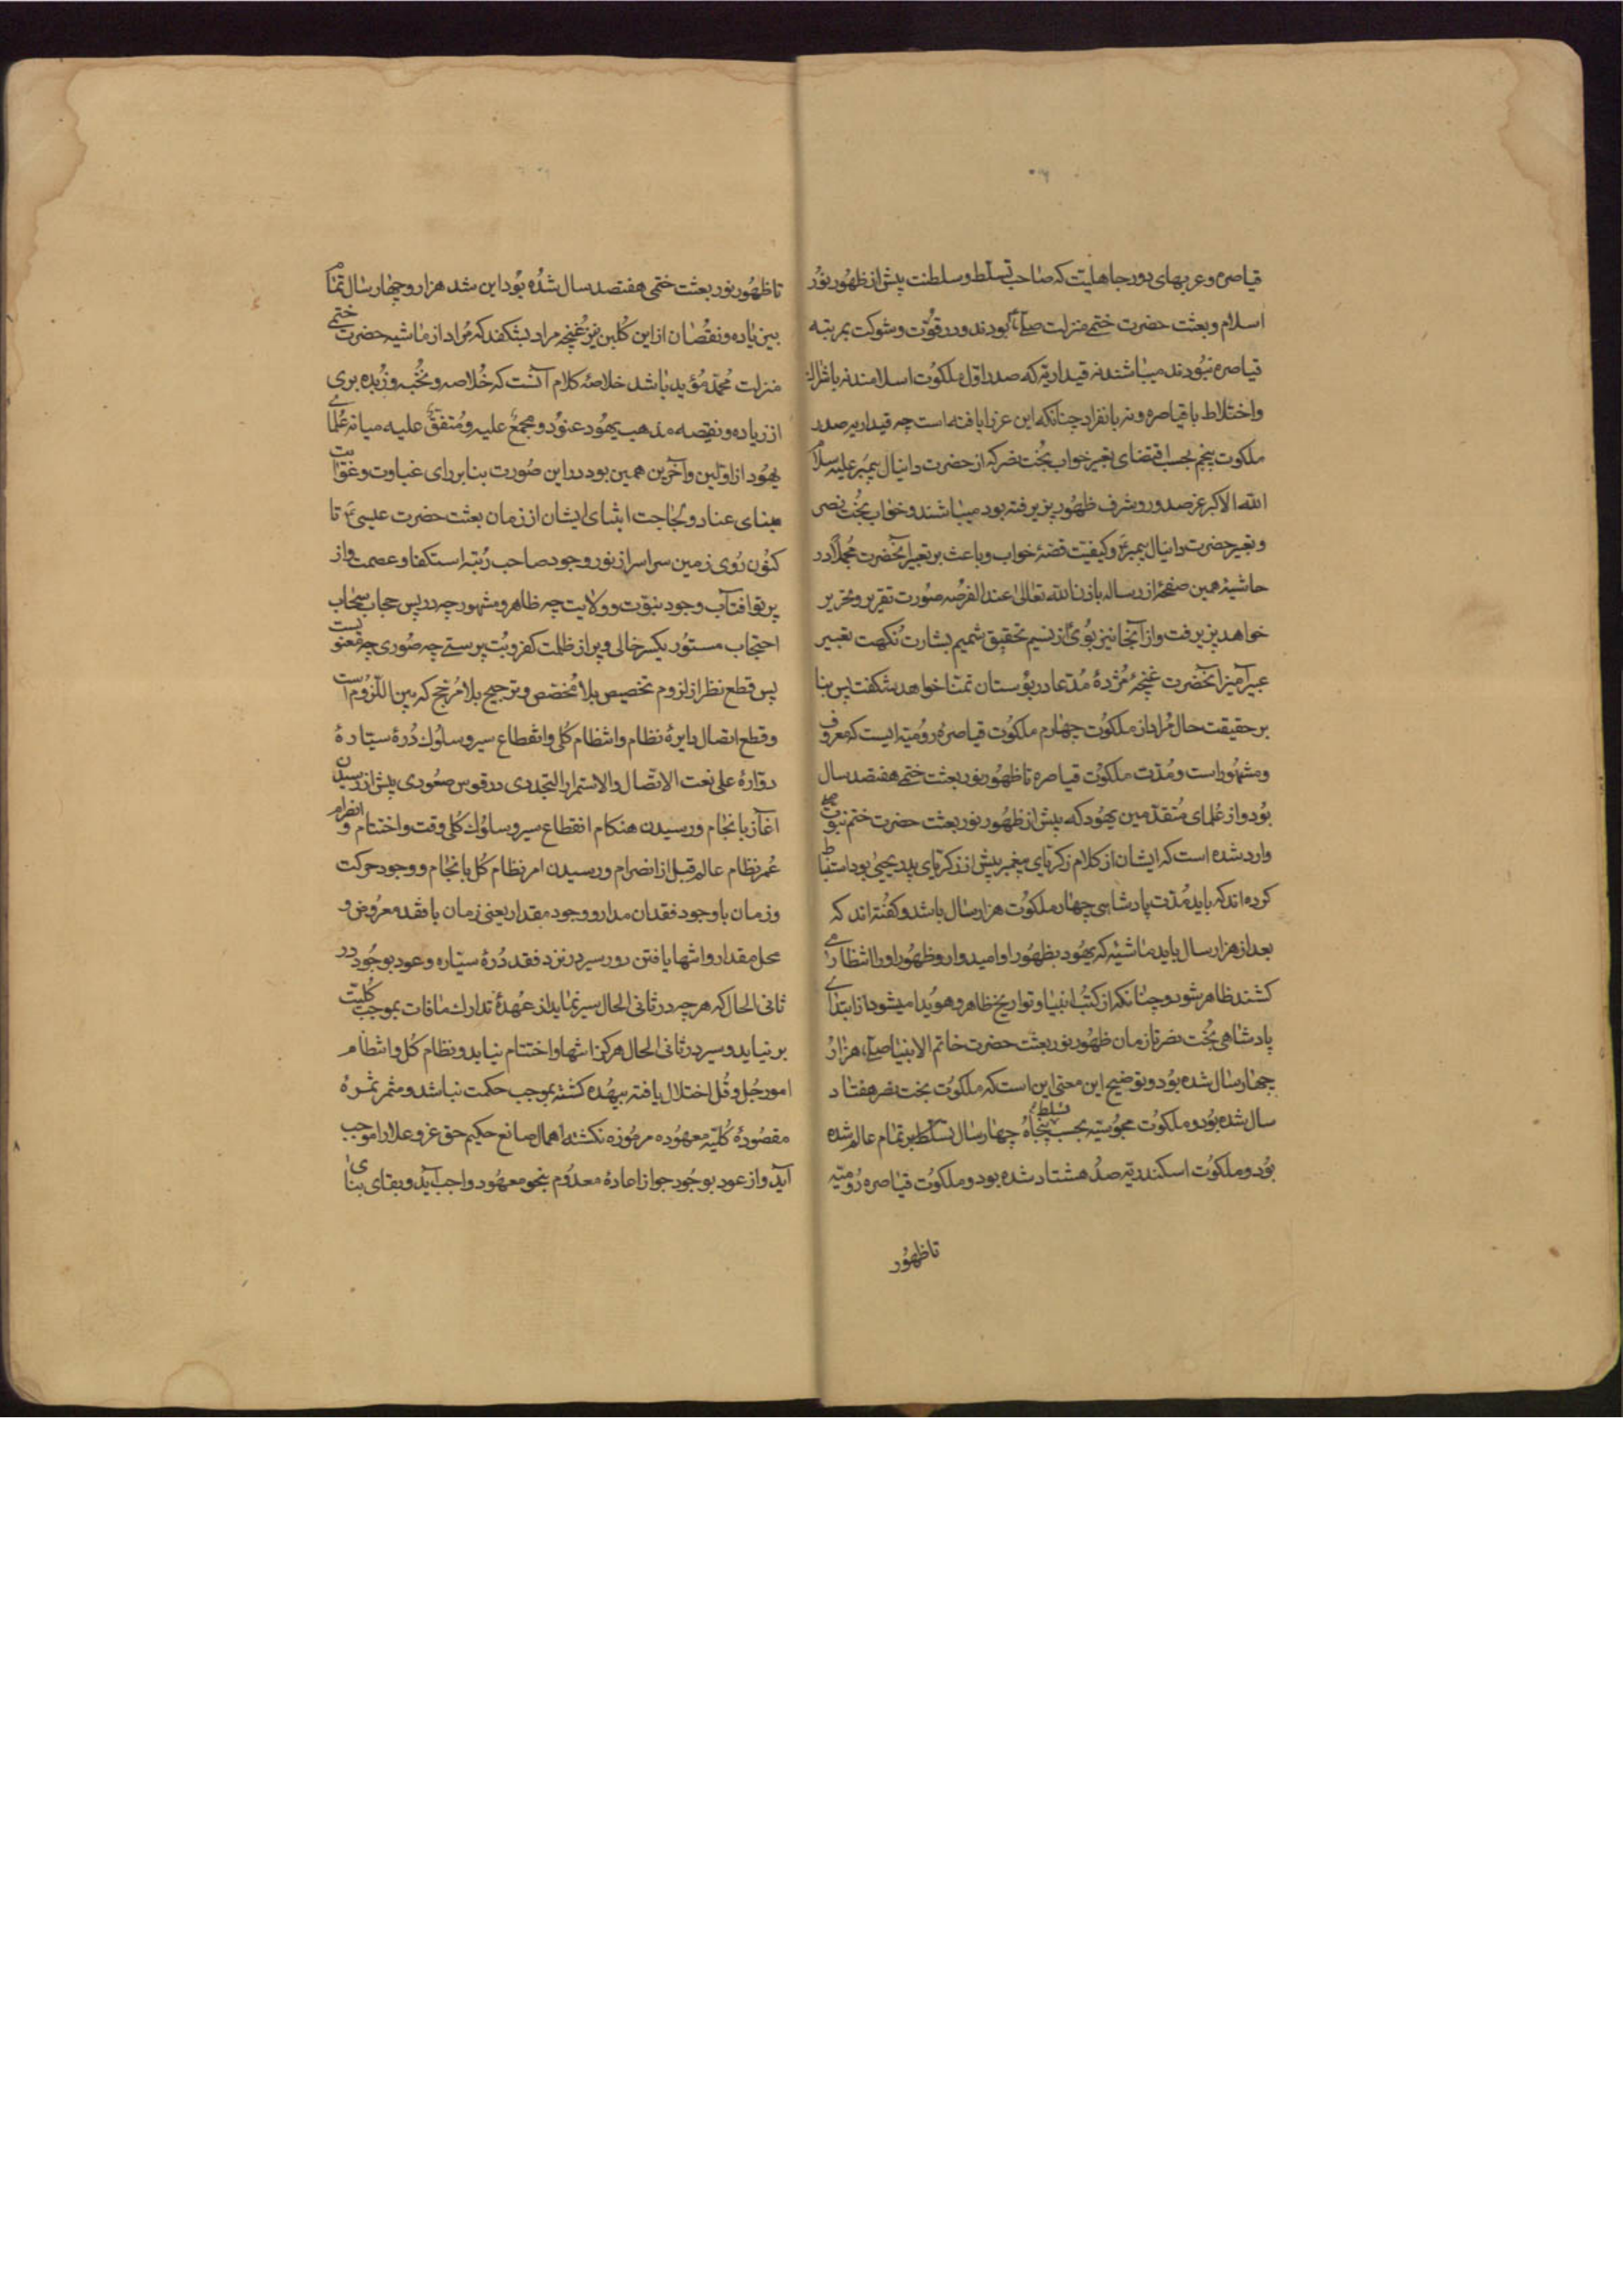 قیاصره و عربهای دور جاهلیت که صاحب تسلط و سلطنت پیش از ظهور نور
اسلام و بعثت حضرت ختمی منزلت صلعم بودند و در قوت و شوکت بمرتبه
قیاصره نبودند میباشند نه قیداریه که صدر اول ملکوت اسلامند نه باشراک
و اختلاط با قیاصره و نه بانفراد چنانکه این عز ایا یافته است چه قیداریه صدر
ملکوت پنجم بحسب اقتضای تعبیر خواب بخت نصر که از حضرت دانیال پیمبر علیه سلام
الله الاکبر عز صدور و شرف ظهور پذیرفته بود میباشند و خواب بخت نصر
و تعبیر حضرت دانیال پیمبر و کیفیت قصه خواب و باعث بر تعبیر آنحضرت مجملا در
حاشیه همین صفحه از رساله باذن الله تعالی عند الفرصه صورت تقریر و تحریر
خواهد پذیرفت و از آنجا نیز بوئی از نسیم تحقیق شمیم بشارت نکهت تعبیر
عبیر آمیز آنحضرت غنچه مژده مدعا در بوستان تمنا خواهد شکفت پس بنا
بر حقیقت حال مراد از ملکوت چهارم ملکوت قیاصره رومیه ایست که معروف
و مشهور است و مدت ملکوت قیاصره تا ظهور نور بعثت ختمی هفتصد سال
بود و از علمای متقدمین یهود که پیش از ظهور نور بعثت حضرت ختم نبوت
وارد شده است که ایشان از کلام زکریای پیغمبر پیش از زکریای پدر یحیی بود استنباط
کرده اند که باید مدت پادشاهی چهار ملکوت هزار سال باشد و گفته اند که
بعد از هزار سال باید ماشیه که یهود بظهور او امیدوار و ظهور او را انتظار می
کشند ظاهر شود و چنانکه از کتب انبیا و تواریخ ظاهر و هویدا میشود از ابتدای
پادشاهی بخت نصر تا زمان ظهور نور بعثت حضرت خاتم الانبیا صلعم هزار
چهار سال شده بود و توضیح این معنی این است که ملکوت بخت نصر هفتاد
سال شده بود و ملکوت مجوسیه بحسب تسلط پنجاه چهار سال تسلط بر تمام عالم شده
بود و ملکوت اسکندریه صد هشتاد شده بود و ملکوت قیاصره رومیه
تا ظهور
تا ظهور نور بعثت ختمی هفتصد سال شده بود این شد هزار و چهار سال تمام
بی زیاده و نقصان از این گلبن نیز غنچه مراد بشکفد که مراد از ماشیه حضرت ختمی
منزلت محمد مؤید باشد خلاصه کلام آنست که خلاصه و نخبه و زبده بری
از زیاده و نقیصه مذهب یهود عنود و مجمع علیه و متفق علیه میانه علمای
یهود از اولین و آخرین همین بود در این صورت بنا بر رای غباوت و غوایت
مبنای عناد و لجاجت ایشان از زمان بعثت حضرت عیسی تا
کنون روی زمین سراسر از نور وجود صاحب رتبه استکفا و عصمت و از
پرتو آفتاب وجود نبوت و ولایت چه ظاهر و مشهور چه در پس حجاب سحاب
احتجاب مستور یکسر خالی و پر از ظلمت کفر و بت پرستی چه صوری چه معنوی است
پس قطع نظر از لزوم تخصیص بلا مخصص و ترجیح بلا مرجح که بین اللزوم است
و قطع اتصال دایره نظام و انتظام کلی و انقطاع سیر و سلوک دره سیاره
دواره علی نعت الاتصال و الاستمرار التجددی در قوس صعودی پیش از رسیدن
آغاز بانجام و رسیدن هنگام انقطاع سیر و سلوک کلی وقت و اختتام و انصرام
عمر نظام عالم قبل از انصرام و رسیدن امر نظام کل بانجام و وجود حرکت
و زمان با وجود فقدان مدار و وجود مقدار یعنی زمان با فقد معروض و
محل مقدار و انتها یافتن دور سیر در نزد فقد دره سیاره و عود بوجود در
ثانی الحال که هر چه در ثانی الحال سیر نماید از عهده تدارک ما فات بموجب کلیت
بر نیاید و سیر در ثانی الحال هرگز انتها و اختتام نیابد و نظام کل و انتظام
امور جل و قل اختلال یافته بیهده گشته بموجب حکمت نباشد و مثمر ثمره
مقصوده کلیه معهوده مرموزه نگشته اهمال صانع حکیم حق عز و علا را موجب
آید و از عود بوجود جواز اعاده معدوم بنحو معهود واجب آید و بقای بنای